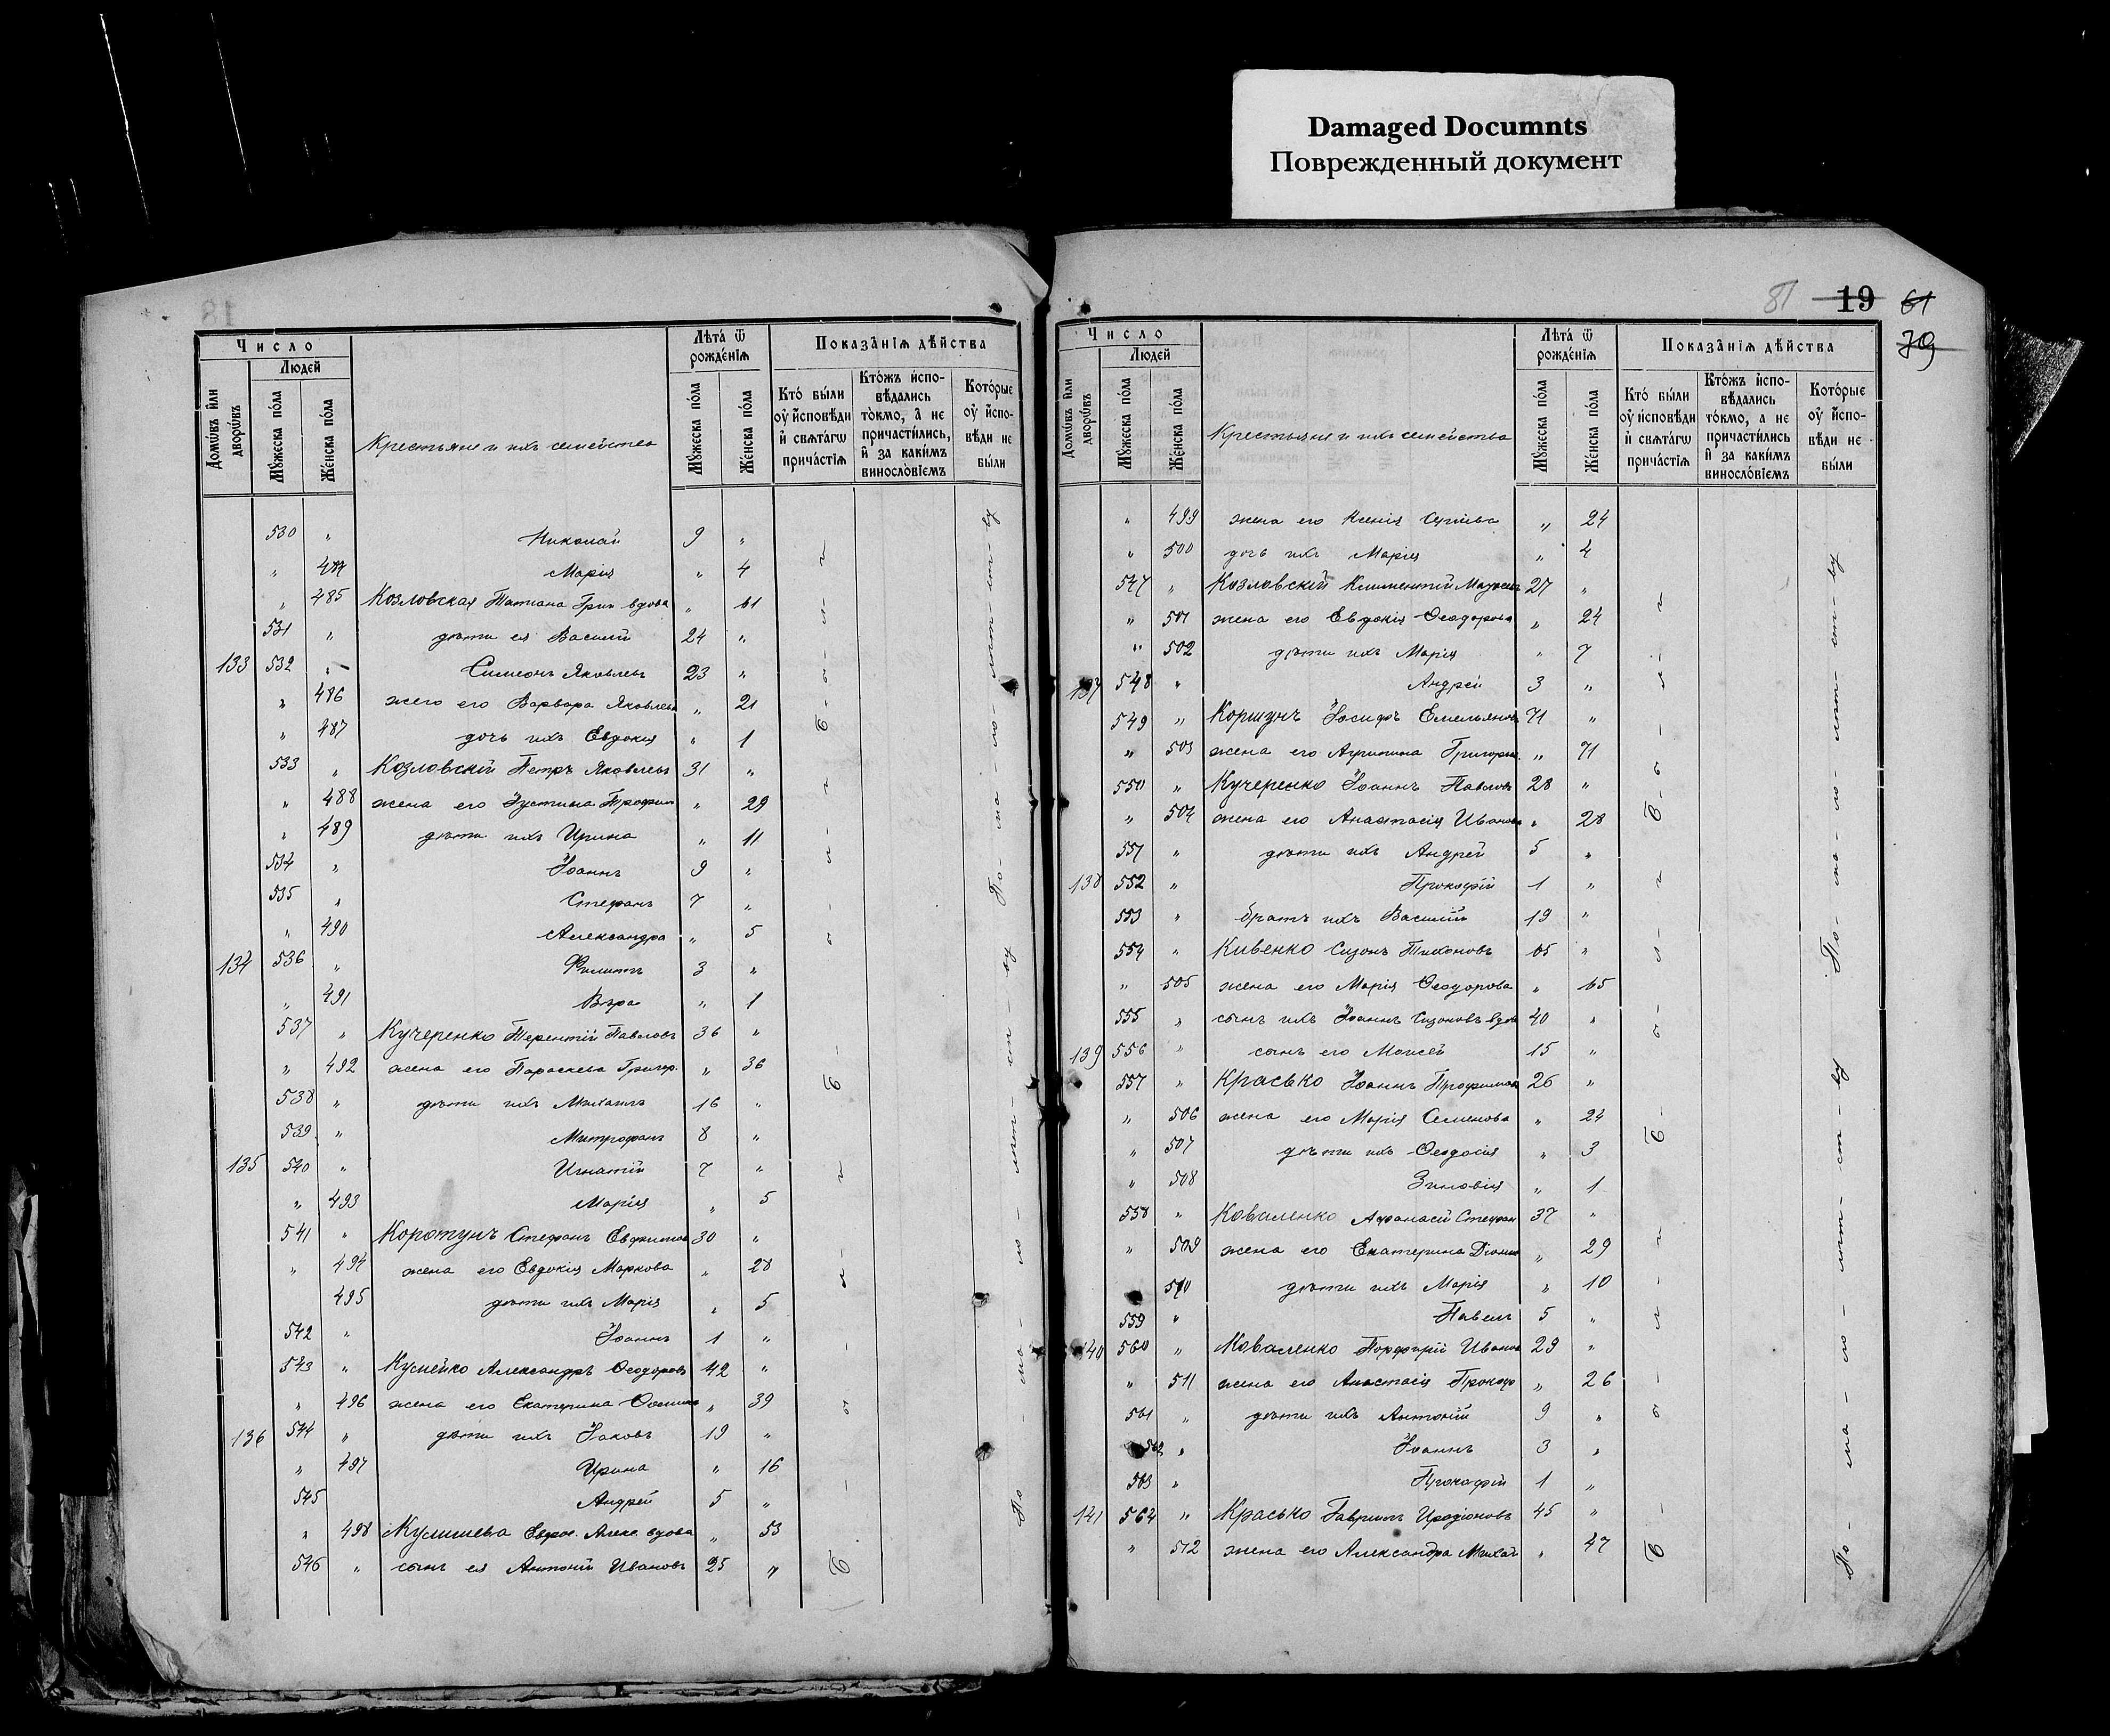 Damaged Documnts
Поврежденный документ
81 19 61
79
Число
Людей
Домѡ́въ и҆лѝ дворѡ́въ
Мꙋ́жеска по́ла
Же́нска по́ла
Крестьяне и ихъ семейства
Лѣ́та ѿ рожде́нїѧ
Мꙋ́жеска по́ла
Же́нска по́ла
Показа̑нїѧ дѣ́йства
Кто̀ бы́ли оу҆ и҆́споведи и҆ свѧта́гѡ прича́стїѧ
Кто́жъ и҆спо-вѣ́дались то́кмо, а҆ не причасти́лись, и҆ за каки́мъ винослові́емъ
Кото́рые оу҆ и҆́спо-вѣди не бы́ли
530 " Николай 9 "
" 484 Марія " 4
" 485 Козловская Татіана Григ. вдова " 61
531 " дѣти ея Василій 24 "
133 532 " Симеонъ Яковлевъ 23 "
" 486 жено его Варвара Яковлева " 21
" 487 дочь ихъ Евдокія " 1
533 " Козловскій Петръ Яковлевъ 31 "
" 488 жена его Іустина Трофим " 29
" 489 дѣти ихъ Ирина " 11
534 " Іоаннъ 9 "
535 " Стефанъ 7 "
" 490 Александра " 5
134 536 " Филиппъ 3 "
" 491 Вѣра " 1
537 " Кучеренко Терентій Павловъ 36 "
" 492 жена его Параскева Григор. " 36
538 " дѣти ихъ Михаилъ 16 "
539 " Митрофанъ 8 "
135 540 " Игнатій 7 "
" 493 Марія " 5
541 " Коротунъ Стефанъ Евфимов 30 "
" 494 жена его Евдокія Маркова " 28
495 дѣти ихъ Марія " 5
542 " Іоаннъ 1 "
543 " Александръ Ѳеодоровъ 42 "
" 496 жена его Екатерина " 39
136 544 " дѣти ихъ Іаковъ 19 "
" 497 Ирина " 16
545 Андрей 5 "
" 498 Евфр. Алекс. вдова " 53
546 " сынъ ея Антоній Ивановъ 25 "
Б-ы-л-и
По-ма-ло-лѣт-ст-ву
Число
Людей
Домѡ́въ и҆лѝ дворѡ́въ
Мꙋ́жеска по́ла
Же́нска по́ла
Крестьяне и ихъ семейства
Лѣ́та ѿ рожде́нїѧ
Мꙋ́жеска по́ла
Же́нска по́ла
Показа̑нїѧ дѣ́йства
Кто̀ бы́ли оу҆ и҆споведи и҆ свѧта́гѡ прича́стїѧ
Кто́жъ и҆спо-вѣ́дались то́кмо, а҆ не причасти́лись и҆ за каки́мъ винослові́емъ
Кото́рые оу҆ и҆́спо-вѣди не бы́ли
" 499 жена его Ксенія " 24
" 500 дочь ихъ Марія " 4
547 " Козловскій Климентій 27 "
" 501 жена его Евдокія Ѳеодорова " 24
" 502 дѣти ихъ Марія " 7
137 548 " Андрей 3 "
549 " Коршунъ Іосифъ Емельяновъ 71 "
" 503 жена его Агрипина Григорьев. " 71
550 " Кучеренко Іоаннъ Павловъ 28 "
" 504 жена его Анастасія Иванова " 28
551 " дѣти ихъ Андрей 5 "
138 552 " Прокофій 1 "
553 " братъ ихъ Василій 19 "
554 " Кивенко Сизонъ Тихоновъ 65 "
" 505 жена его Марія Ѳеодорова " 65
555 " сынъ ихъ Іоаннъ Сизоновъ вдов 40 "
139 556 " сынъ его Моисей 15 "
557 " Красько Іоаннъ Трофимов 26 "
" 506 жена его Марія Семенова " 24
" 507 дѣти ихъ Ѳеодосія " 3
" 508 Зиновія " 1
558 " Коваленко Аѳанасій Стефан 37 "
" 509 жена его Екатерина Діонис " 29
510 дѣти ихъ Марія " 10
559 " Павелъ 5 "
140 560 " Коваленко Порфирій Иванов 29 "
" 511 жена его Анастасія Прокоф " 26
561 " дѣти ихъ Антоній 9 "
562 " Іоаннъ 3 "
563 " Прокофій 1 "
141 564 " Красько Гавріилъ Иродіоновъ 45 "
" 512 жена его Александра Михай " 47
Б-ы-л-и
По-ма-ло-лѣт-ст-ву